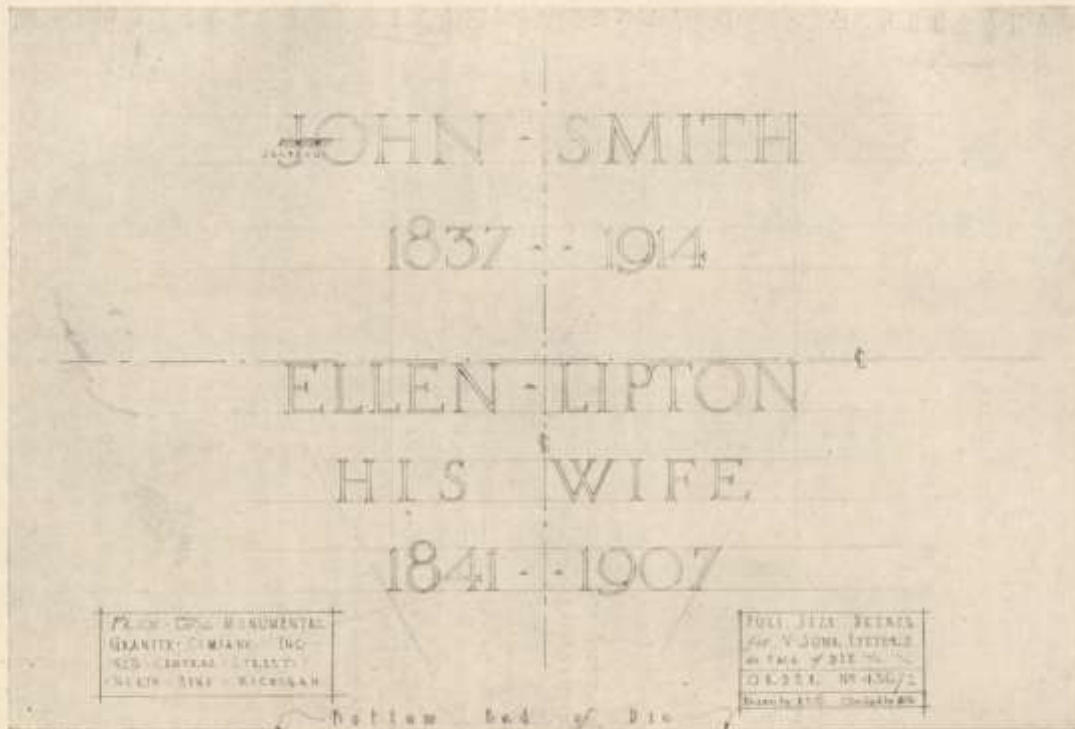 JOHN - SMITH
1837 - - 1914
ELLEN - LIPTON
HIS WIFE
1841 - - 1907
MONUMENTAL
GRANITE · COMPANY · INC
CENTRAL · STREET
MICHIGAN
FULL SIZE DETAILS
for V SUNK LETTERS
on FACE of DIE
ORDER Nº
Bottom Bed of Die